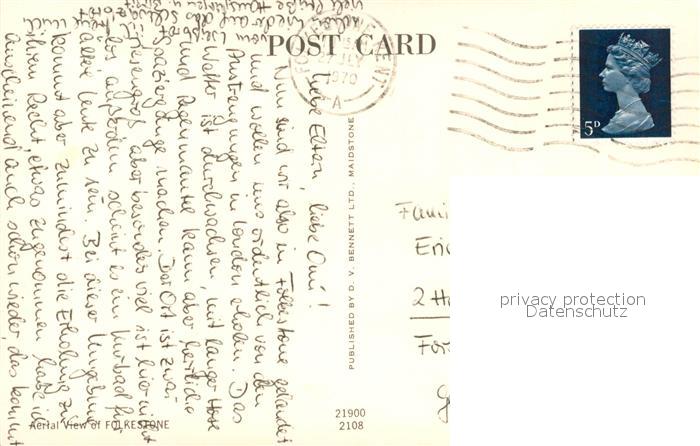 POST CARD
FOLKESTONE KENT
27 JLY
1970
A
5D
Liebe Eltern, liebe Omi!
Nun sind wir also in Folkestone gelandet
und wollen uns ordentlich von den
Anstrengungen in London erholen. Das
Wetter ist durchwachsen, mit langer Hose
und Regenmantel kann man aber herrliche
Spaziergänge machen. Der Ort ist zwar
riesengroß, aber besonders viel ist hier nicht
los, außerdem scheint es ein Kurbad für
alte Leute zu sein. Bei dieser Umgebung
kommt aber zumindest die Erholung zu
ihrem Recht, etwas zugenommen habe ich
anscheinend auch schon wieder, das kommt
vom
PUBLISHED BY D. V. BENNETT LTD., MAIDSTONE
Fami
Eric
2 Ha
privacy protection
Datenschutz
21900
2108
Aerial View of FOLKESTONE